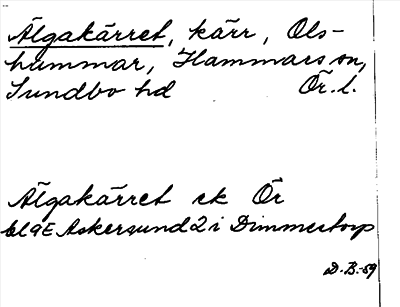 Älgakärret, kärr, Ols-
hammar, Hammars sn,
Sundbo hd Ör. l.
Älgakärret ek Ör
bl 9E Askersund 2 i Dimmestorp
D.B.-59